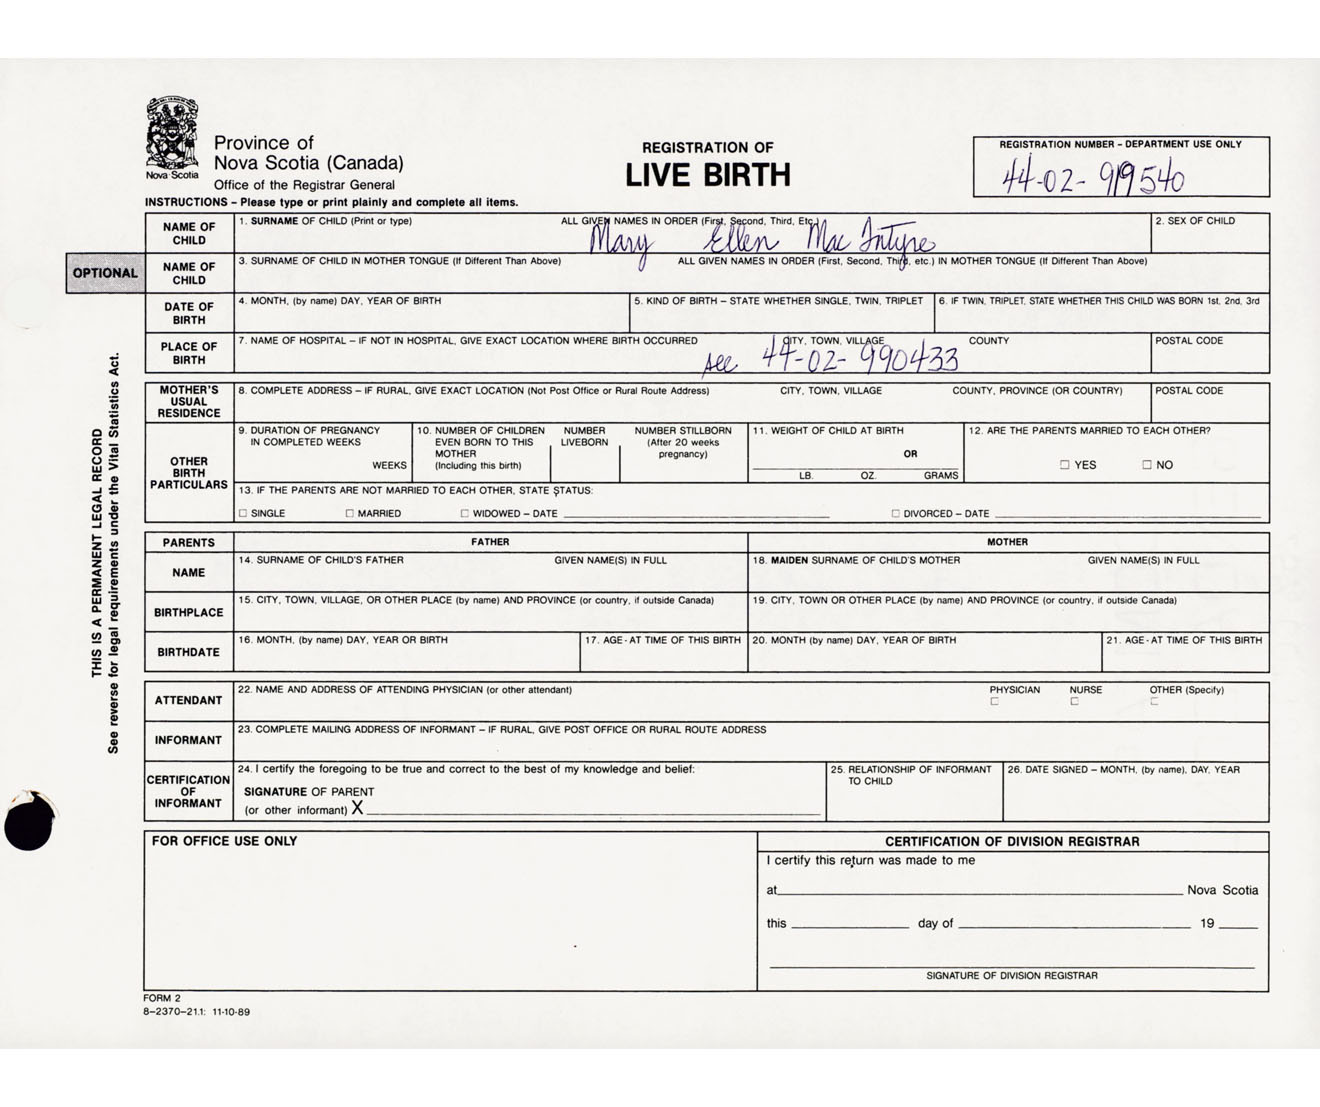 Nova Scotia
Province of
Nova Scotia (Canada)
Office of the Registrar General
REGISTRATION OF
LIVE BIRTH
REGISTRATION NUMBER – DEPARTMENT USE ONLY
44-02-919540
INSTRUCTIONS – Please type or print plainly and complete all items.
NAME OF CHILD
1. SURNAME OF CHILD (Print or type) ALL GIVEN NAMES IN ORDER (First, Second, Third, Etc.)
Mary Ellen MacIntyre
2. SEX OF CHILD
OPTIONAL
NAME OF CHILD
3. SURNAME OF CHILD IN MOTHER TONGUE (If Different Than Above) ALL GIVEN NAMES IN ORDER (First, Second, Third, etc.) IN MOTHER TONGUE (If Different Than Above)
DATE OF BIRTH
4. MONTH, (by name) DAY, YEAR OF BIRTH
5. KIND OF BIRTH – STATE WHETHER SINGLE, TWIN, TRIPLET
6. IF TWIN, TRIPLET, STATE WHETHER THIS CHILD WAS BORN 1st, 2nd, 3rd
PLACE OF BIRTH
7. NAME OF HOSPITAL – IF NOT IN HOSPITAL, GIVE EXACT LOCATION WHERE BIRTH OCCURRED CITY, TOWN, VILLAGE COUNTY
POSTAL CODE
see 44-02-990433
MOTHER'S USUAL RESIDENCE
8. COMPLETE ADDRESS – IF RURAL, GIVE EXACT LOCATION (Not Post Office or Rural Route Address) CITY, TOWN, VILLAGE COUNTY, PROVINCE (OR COUNTRY)
POSTAL CODE
OTHER BIRTH PARTICULARS
9. DURATION OF PREGNANCY
IN COMPLETED WEEKS
WEEKS
10. NUMBER OF CHILDREN
EVEN BORN TO THIS
MOTHER
(Including this birth)
NUMBER
LIVEBORN
NUMBER STILLBORN
(After 20 weeks
pregnancy)
11. WEIGHT OF CHILD AT BIRTH
OR
LB. OZ. GRAMS
12. ARE THE PARENTS MARRIED TO EACH OTHER?
☐ YES ☐ NO
13. IF THE PARENTS ARE NOT MARRIED TO EACH OTHER, STATE STATUS:
☐ SINGLE ☐ MARRIED ☐ WIDOWED – DATE ☐ DIVORCED – DATE
PARENTS FATHER MOTHER
NAME
14. SURNAME OF CHILD'S FATHER GIVEN NAME(S) IN FULL
18. MAIDEN SURNAME OF CHILD'S MOTHER GIVEN NAME(S) IN FULL
BIRTHPLACE
15. CITY, TOWN, VILLAGE, OR OTHER PLACE (by name) AND PROVINCE (or country, if outside Canada)
19. CITY, TOWN OR OTHER PLACE (by name) AND PROVINCE (or country, if outside Canada)
BIRTHDATE
16. MONTH, (by name) DAY, YEAR OR BIRTH
17. AGE - AT TIME OF THIS BIRTH
20. MONTH (by name) DAY, YEAR OF BIRTH
21. AGE - AT TIME OF THIS BIRTH
ATTENDANT
22. NAME AND ADDRESS OF ATTENDING PHYSICIAN (or other attendant)
PHYSICIAN ☐ NURSE ☐ OTHER (Specify) ☐
INFORMANT
23. COMPLETE MAILING ADDRESS OF INFORMANT – IF RURAL, GIVE POST OFFICE OR RURAL ROUTE ADDRESS
CERTIFICATION OF INFORMANT
24. I certify the foregoing to be true and correct to the best of my knowledge and belief:
SIGNATURE OF PARENT
(or other informant) X
25. RELATIONSHIP OF INFORMANT
TO CHILD
26. DATE SIGNED – MONTH, (by name), DAY, YEAR
FOR OFFICE USE ONLY
CERTIFICATION OF DIVISION REGISTRAR
I certify this return was made to me
at Nova Scotia
this day of 19
SIGNATURE OF DIVISION REGISTRAR
FORM 2
8–2370–21.1: 11-10-89
THIS IS A PERMANENT LEGAL RECORD
See reverse for legal requirements under the Vital Statistics Act.